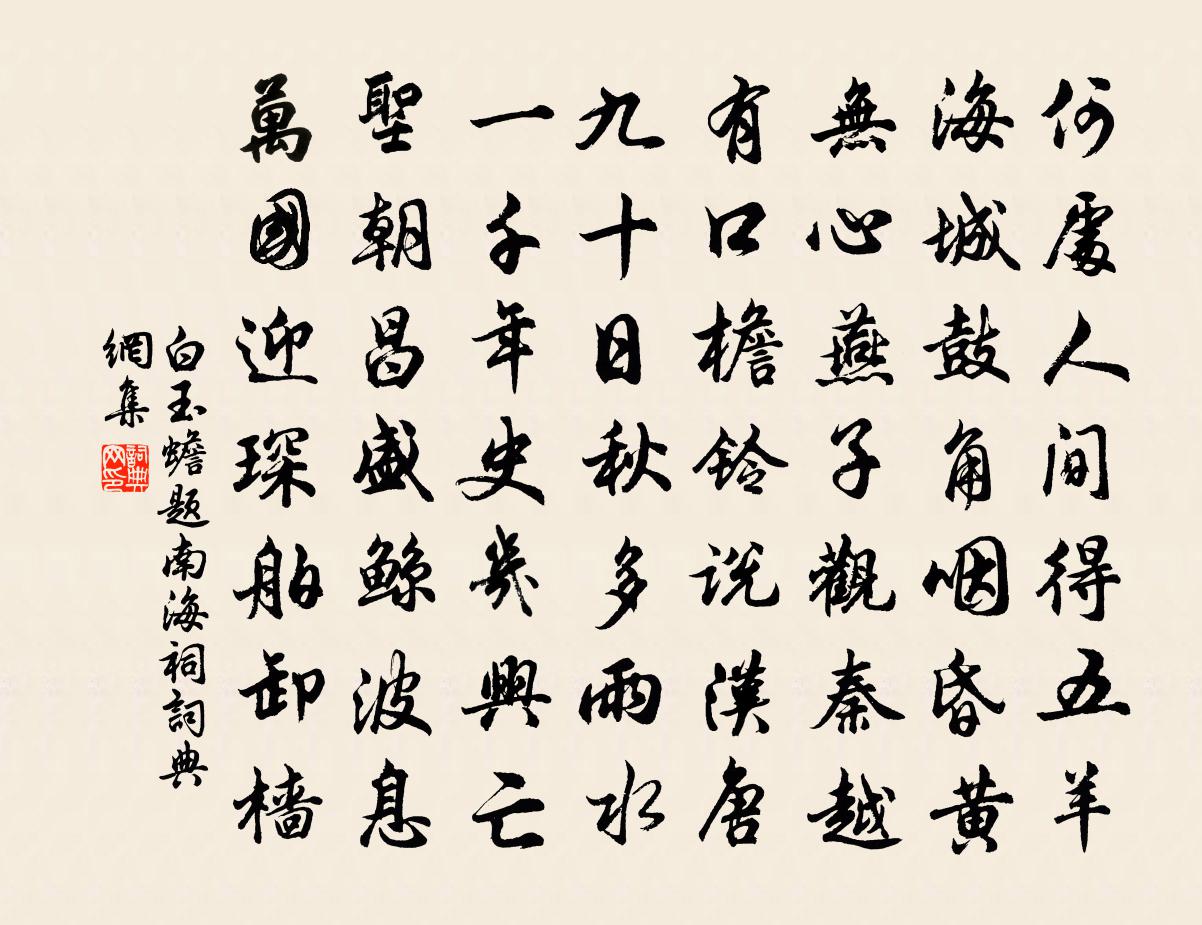 何處人間得五羊
海城鼓角咽昏黃
無心燕子觀秦越
有口檐鈴說漢唐
九十日秋多雨水
一千年史幾興亡
聖朝昌盛鯨波息
萬國迎琛舶卸檣
白玉蟾題南海祠詞典
網集
詞典網印